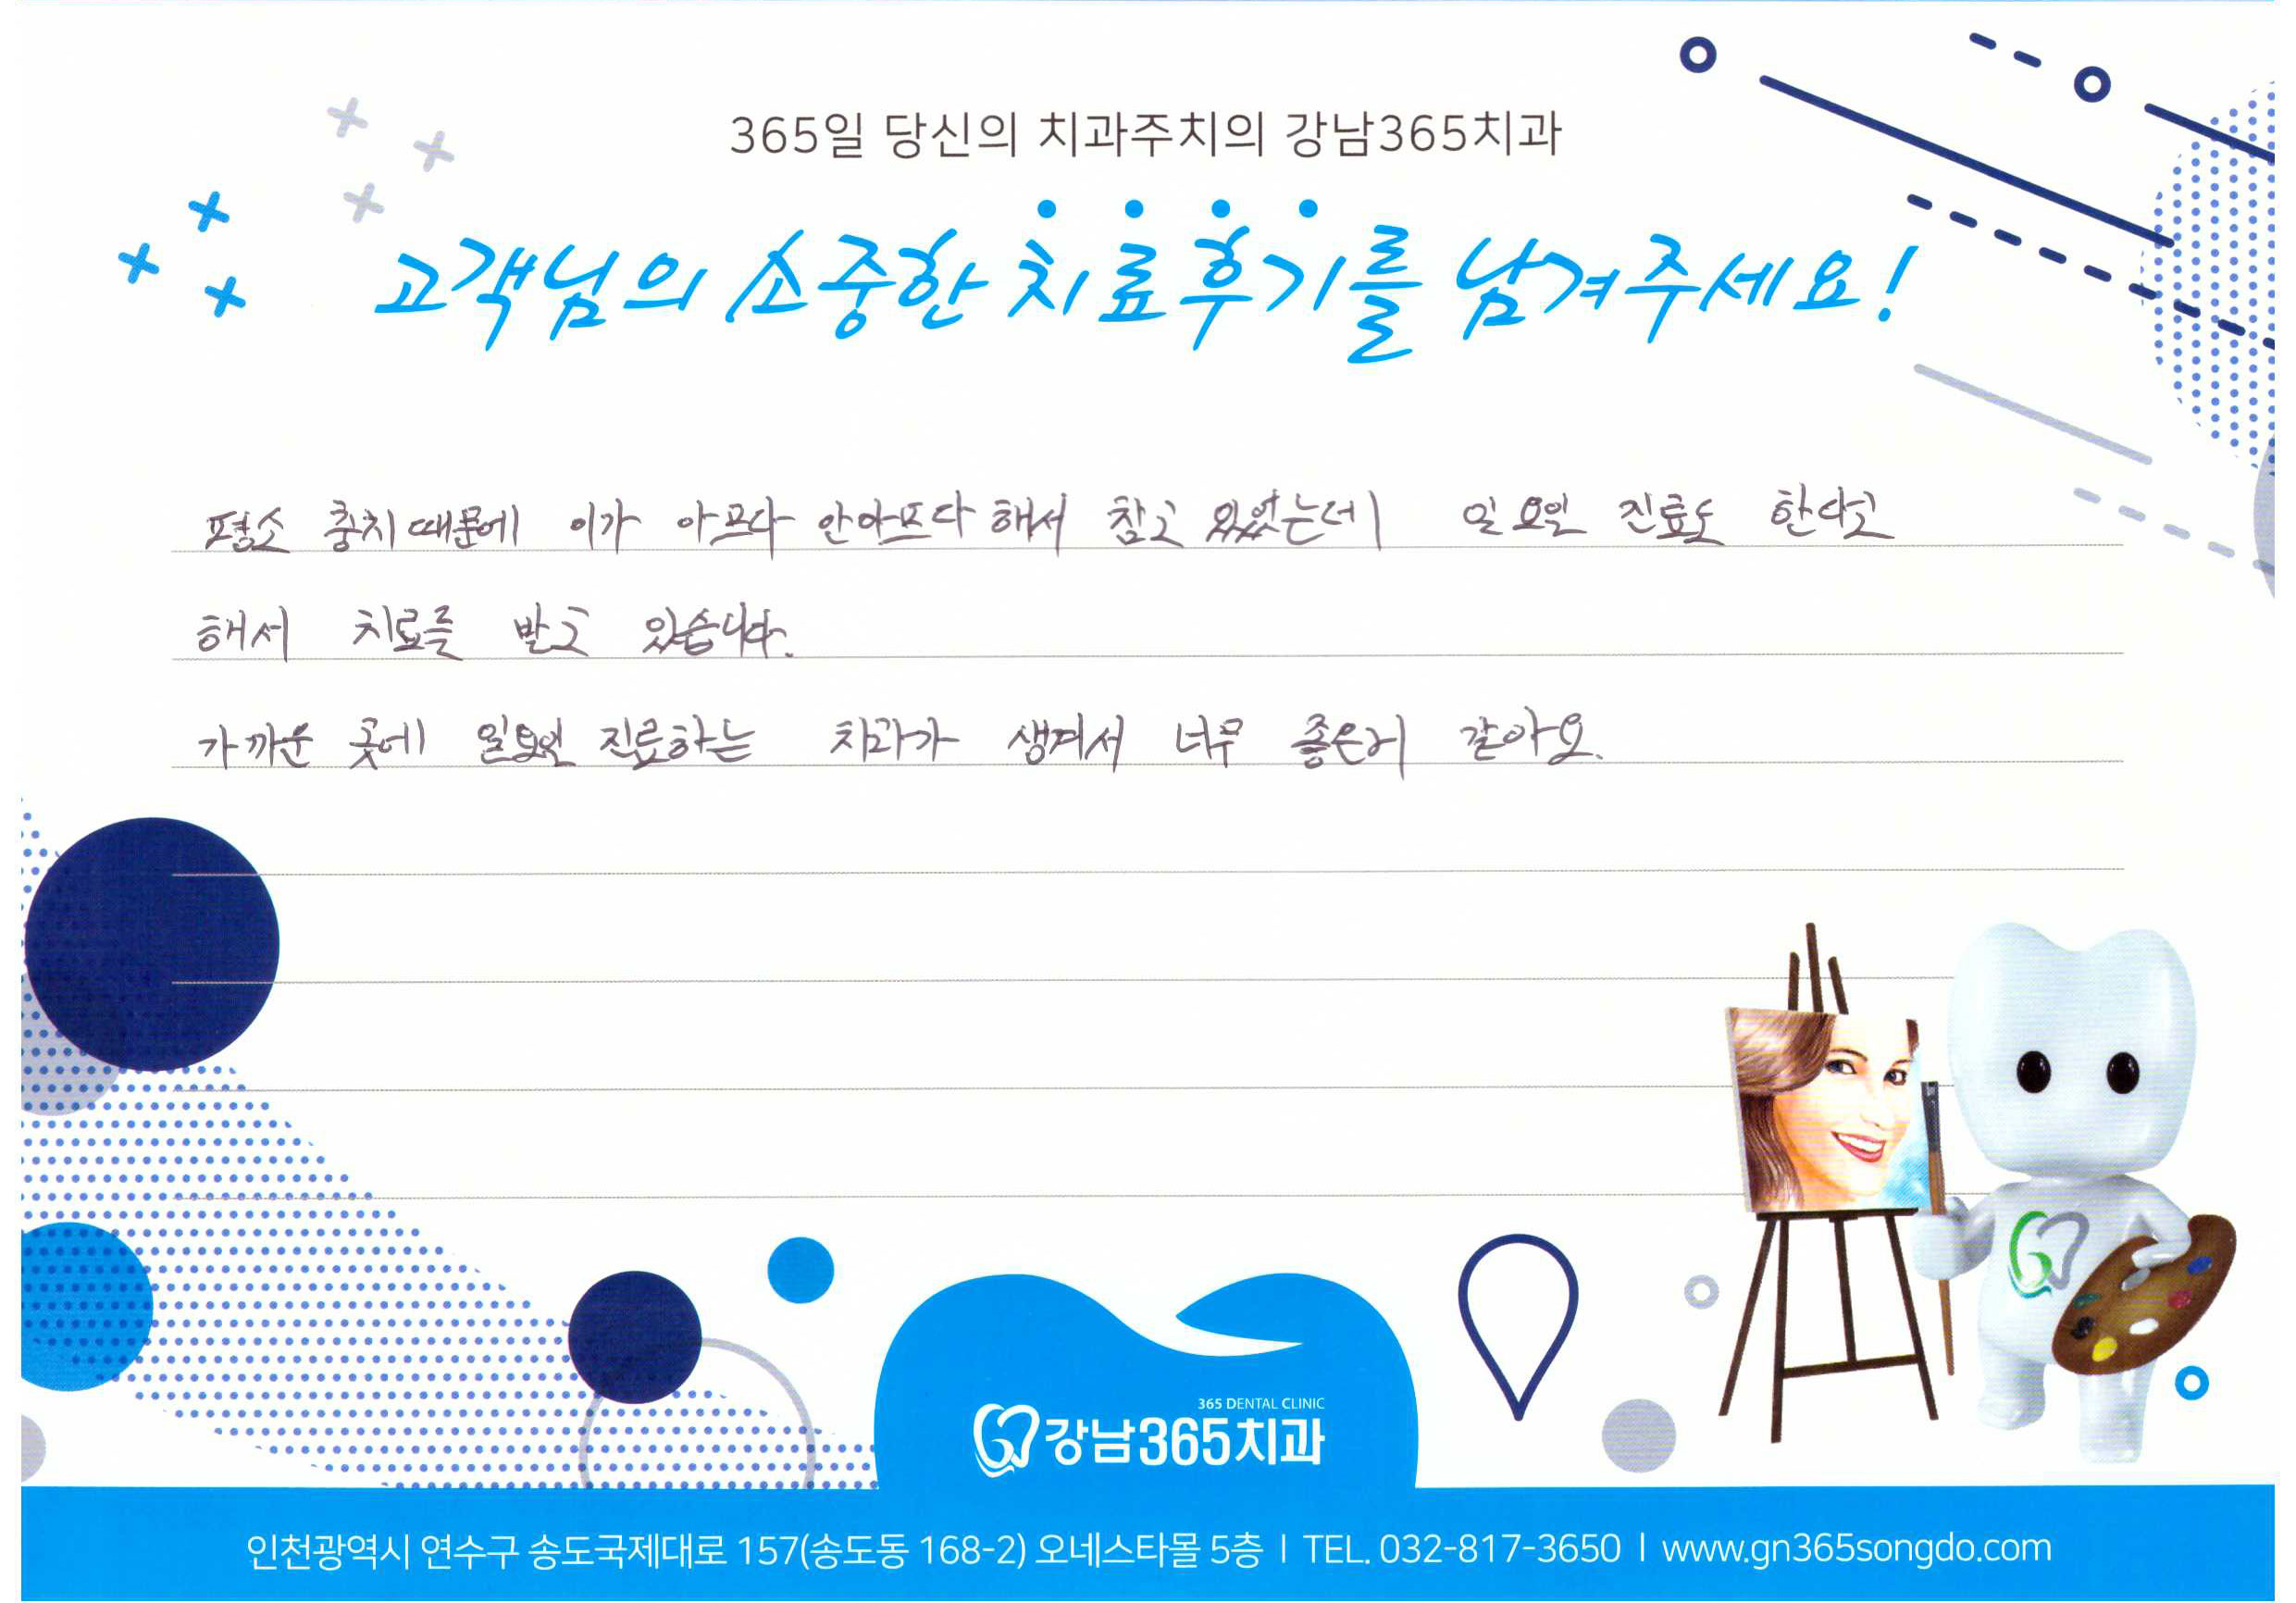 365일 당신의 치과주치의 강남365치과
고객님의 소중한 치료후기를 남겨주세요!
평소 충치때문에 이가 아프다 안아프다 해서 참고 있었는데 일요일 진료도 한다고
해서 치료를 받고 있습니다.
가까운 곳에 일요일 진료하는 치과가 생겨서 너무 좋은거 같아요.
365 DENTAL CLINIC
강남365치과
인천광역시 연수구 송도국제대로 157(송도동 168-2) 오네스타몰 5층 I TEL. 032-817-3650 I www.gn365songdo.com